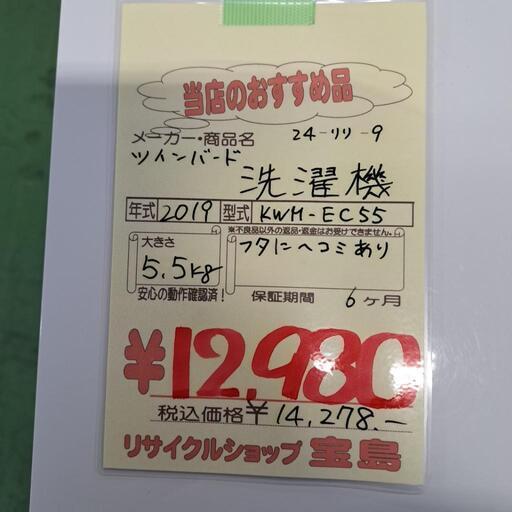 当店のおすすめ品
メーカー・商品名 24-リリ-9
ツインバード
洗濯機
年式 2019 型式 KWM-EC55
※不良品以外の返品・返金はお受けできません。
大きさ フタにヘコミあり
5.5kg
安心の動作確認済! 保証期間 6ヶ月
¥12,980
税込価格¥14,278.-
リサイクルショップ 宝島